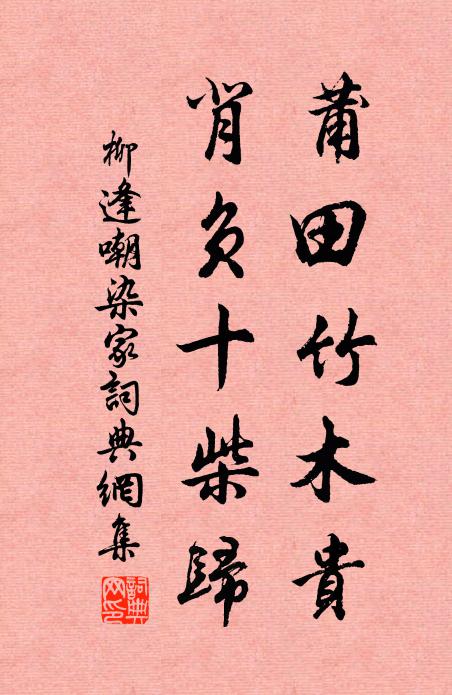 莆田竹木貴
背負十柴歸
柳逢嘲染家詞典網集
詞典网印